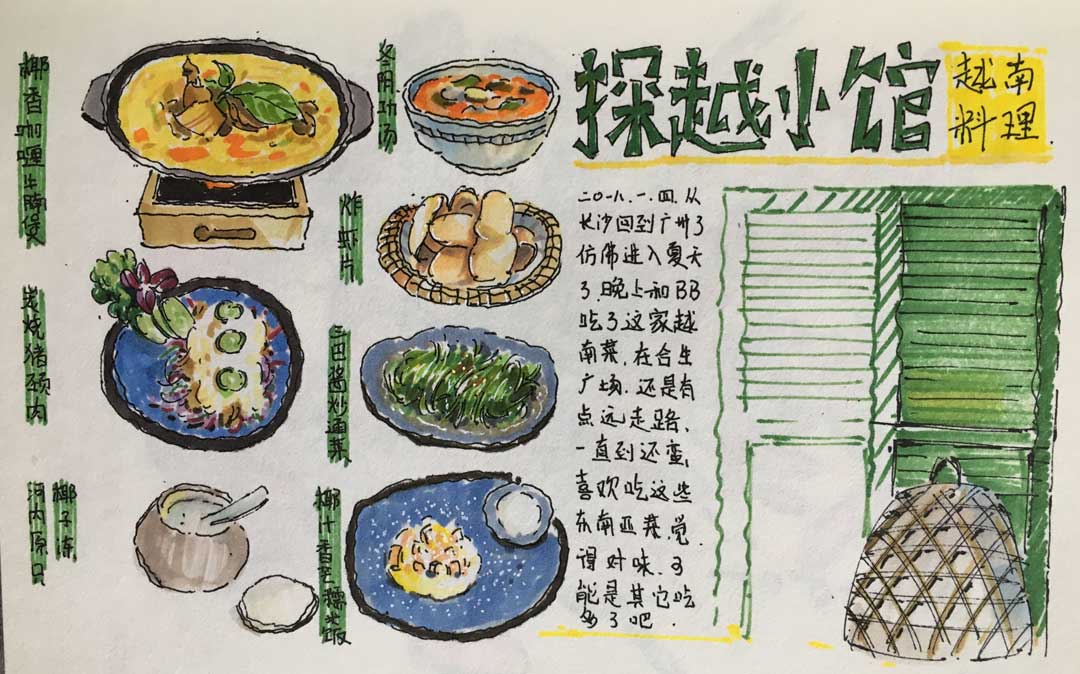 探越小馆
越南
料理
椰香咖喱牛腩煲
冬阴功汤
炸虾片
炭烧猪颈肉
三巴酱炒通菜
河内原只
椰子冻
椰汁香芒糯米饭
二〇一八.一.四.从
长沙回到广州了
仿佛进入夏天
了.晚上和BB
吃了这家越
南菜.在合生
广场.还是有
点远走路、
一直到还蛮
喜欢吃这些
东南亚菜觉
得对味、可
能是其它吃
多了吧.